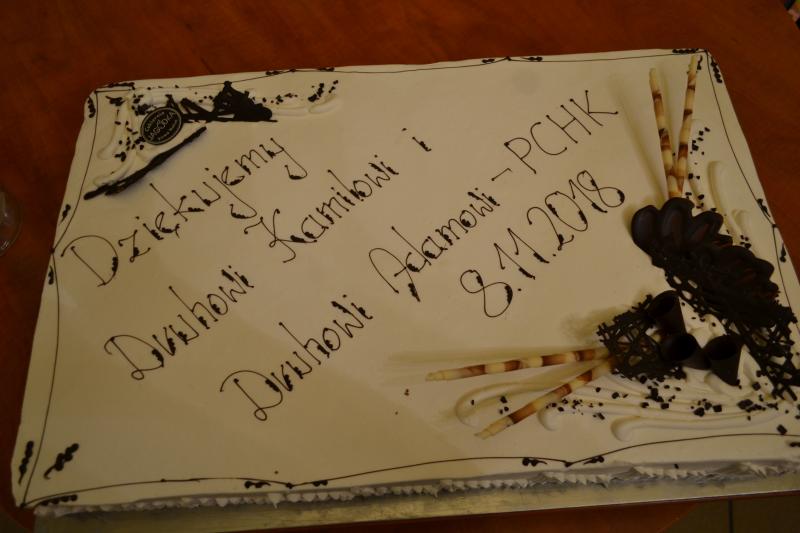 JAGÓDKA
Dziękujemy
Druhowi Kamilowi i
Druhowi Adamowi - PCHK
8.11.2018